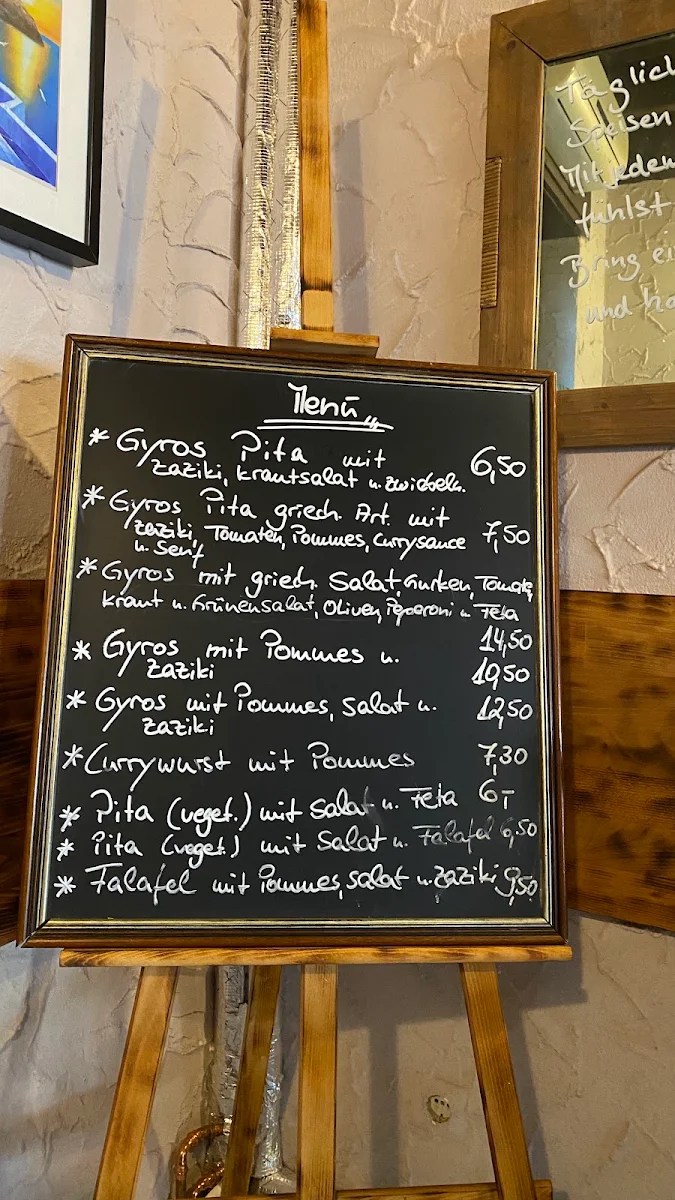 Menü
* Gyros Pita mit 6,50
zaziki, krautsalat u. zwiebeln.
* Gyros Pita griech. Art. mit
zaziki, Tomaten, Pommes, Currysauce 7,50
u. Senf
* Gyros mit griech. Salat, Gurken, Tomate,
kraut u. Grünensalat, Oliven, Peperoni u. Feta
14,50
* Gyros mit Pommes u. 10,50
zaziki
* Gyros mit Pommes, Salat u. 12,50
zaziki
* Currywurst mit Pommes 7,30
* Pita (veget.) mit Salat u. Feta 6,-
* Pita (veget.) mit Salat u. Falafel 6,50
* Falafel mit Pommes, Salat u. zaziki 9,50
Täglich
Speisen
Mit jedem
fühlst
Bring
und